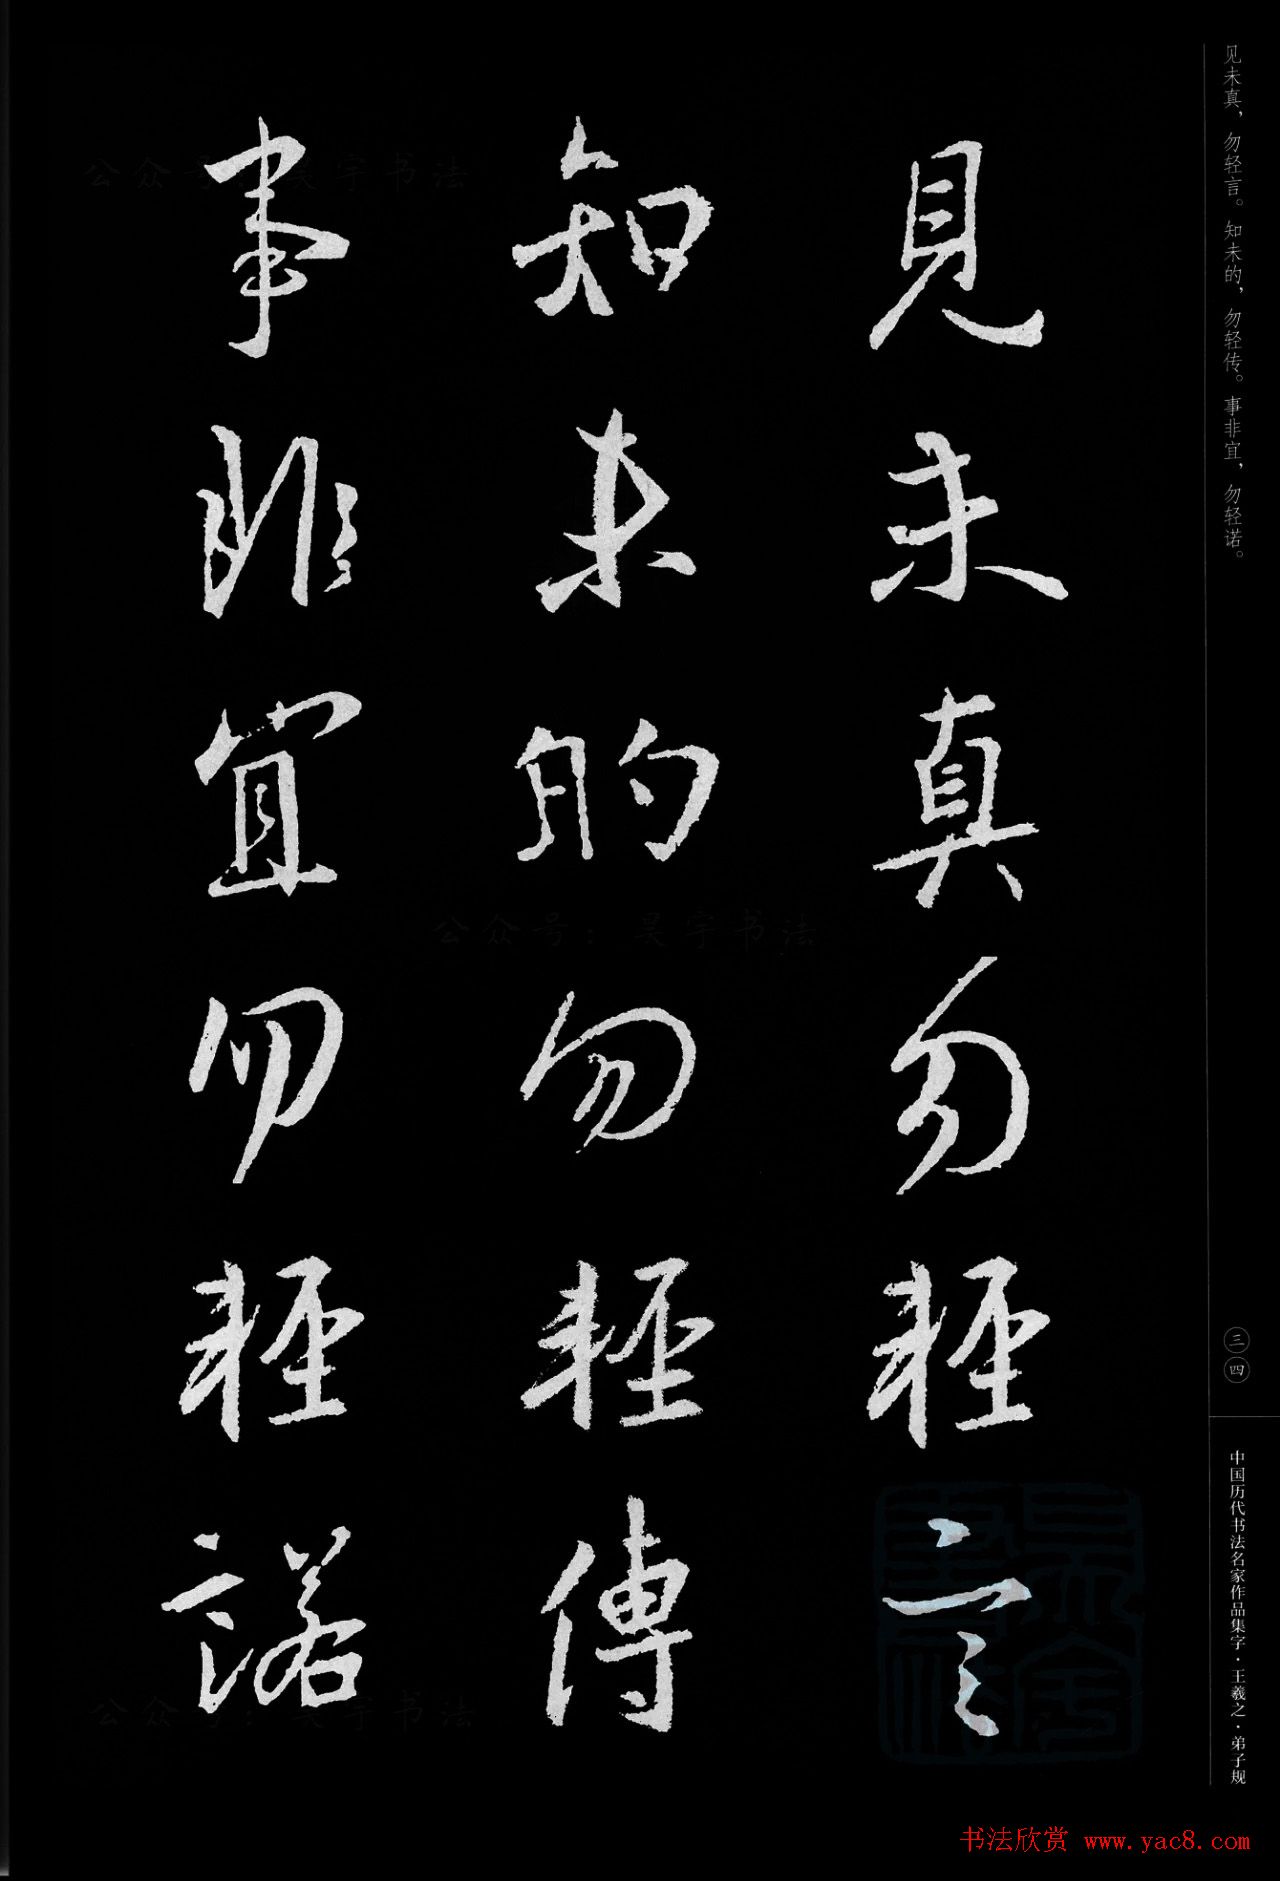 見未真勿輕言
知未的勿輕傳
事非宜勿輕諾
见未真，勿轻言。知未的，勿轻传。事非宜，勿轻诺。
三四
中国历代书法名家作品集字·王羲之·弟子规
公众号：昊宇书法
公众号：昊宇书法
公众号：昊宇书法
书法欣赏 www.yac8.com